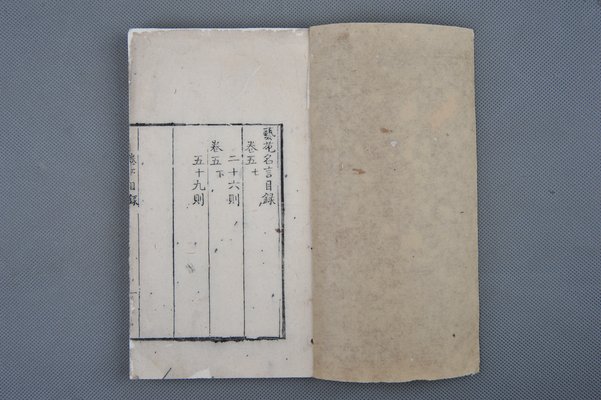 藝菀名言目錄
卷五上
二十六則
卷五下
五十九則
目錄